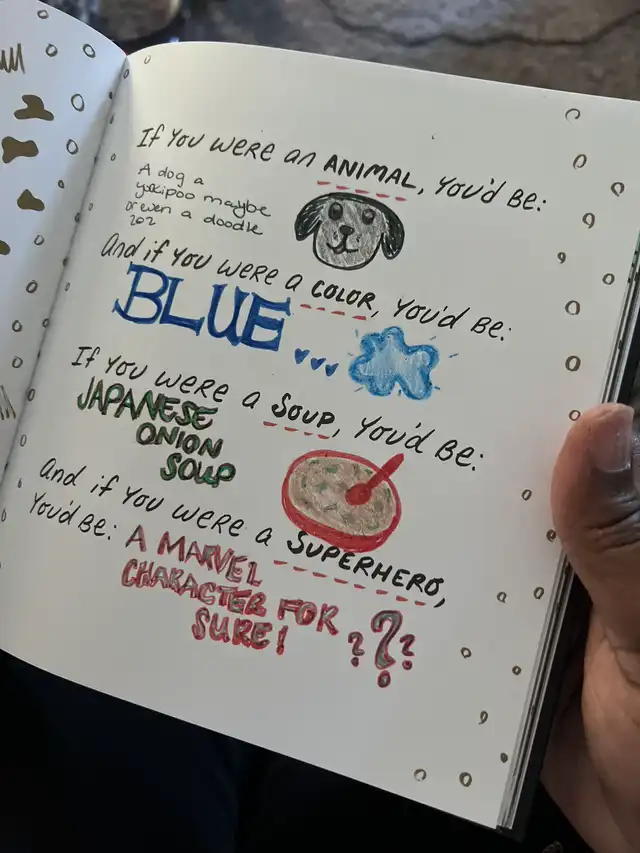 If You were an ANIMAL, You'd Be:
A dog a
yorkipoo maybe
or even a doodle
And if You were a COLOR, You'd Be:
BLUE...
If You were a Soup, You'd Be:
JAPANESE
ONION
SOUP
And if You were a SUPERHERO,
You'd Be: A MARVEL
CHARACTER FOR
SURE! ???